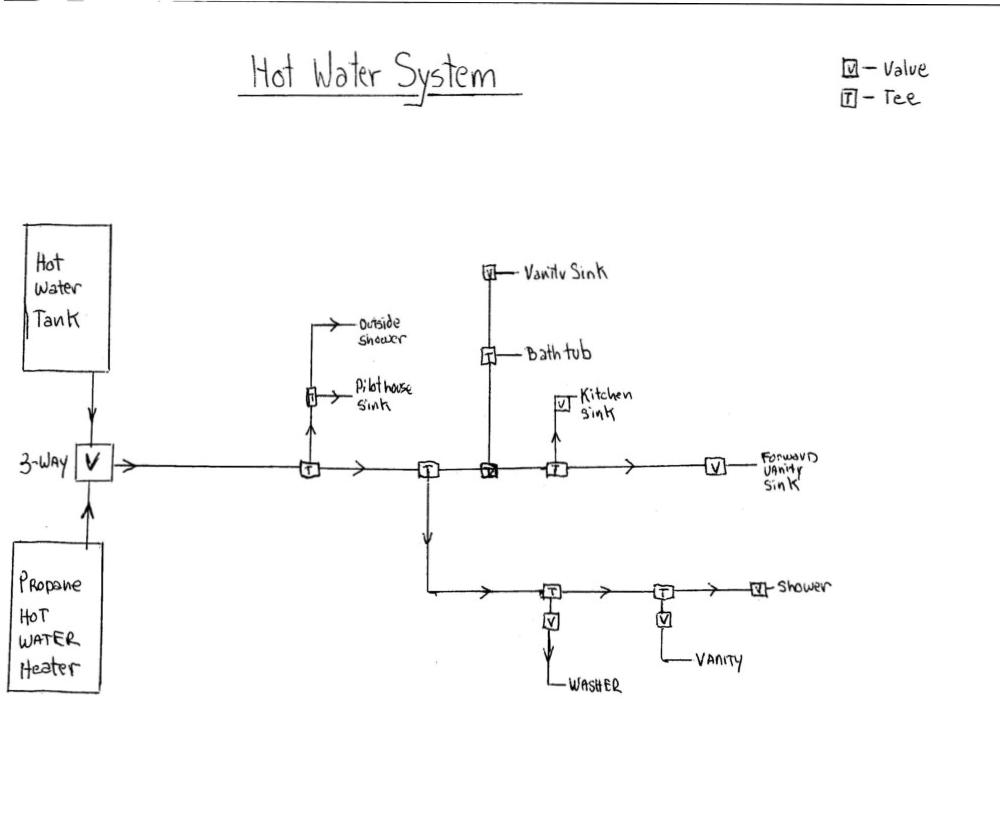 Hot Water System
V - Value
T - Tee
Hot
Water
Tank
3-WAY V
Propane
HOT
WATER
Heater
Outside
Shower
T
Pilothouse
Sink
T
T
V
Vanity Sink
T
Bath tub
V
Kitchen
Sink
T
V
Forward
Vanity
Sink
T
V
WASHER
T
V
VANITY
V
Shower